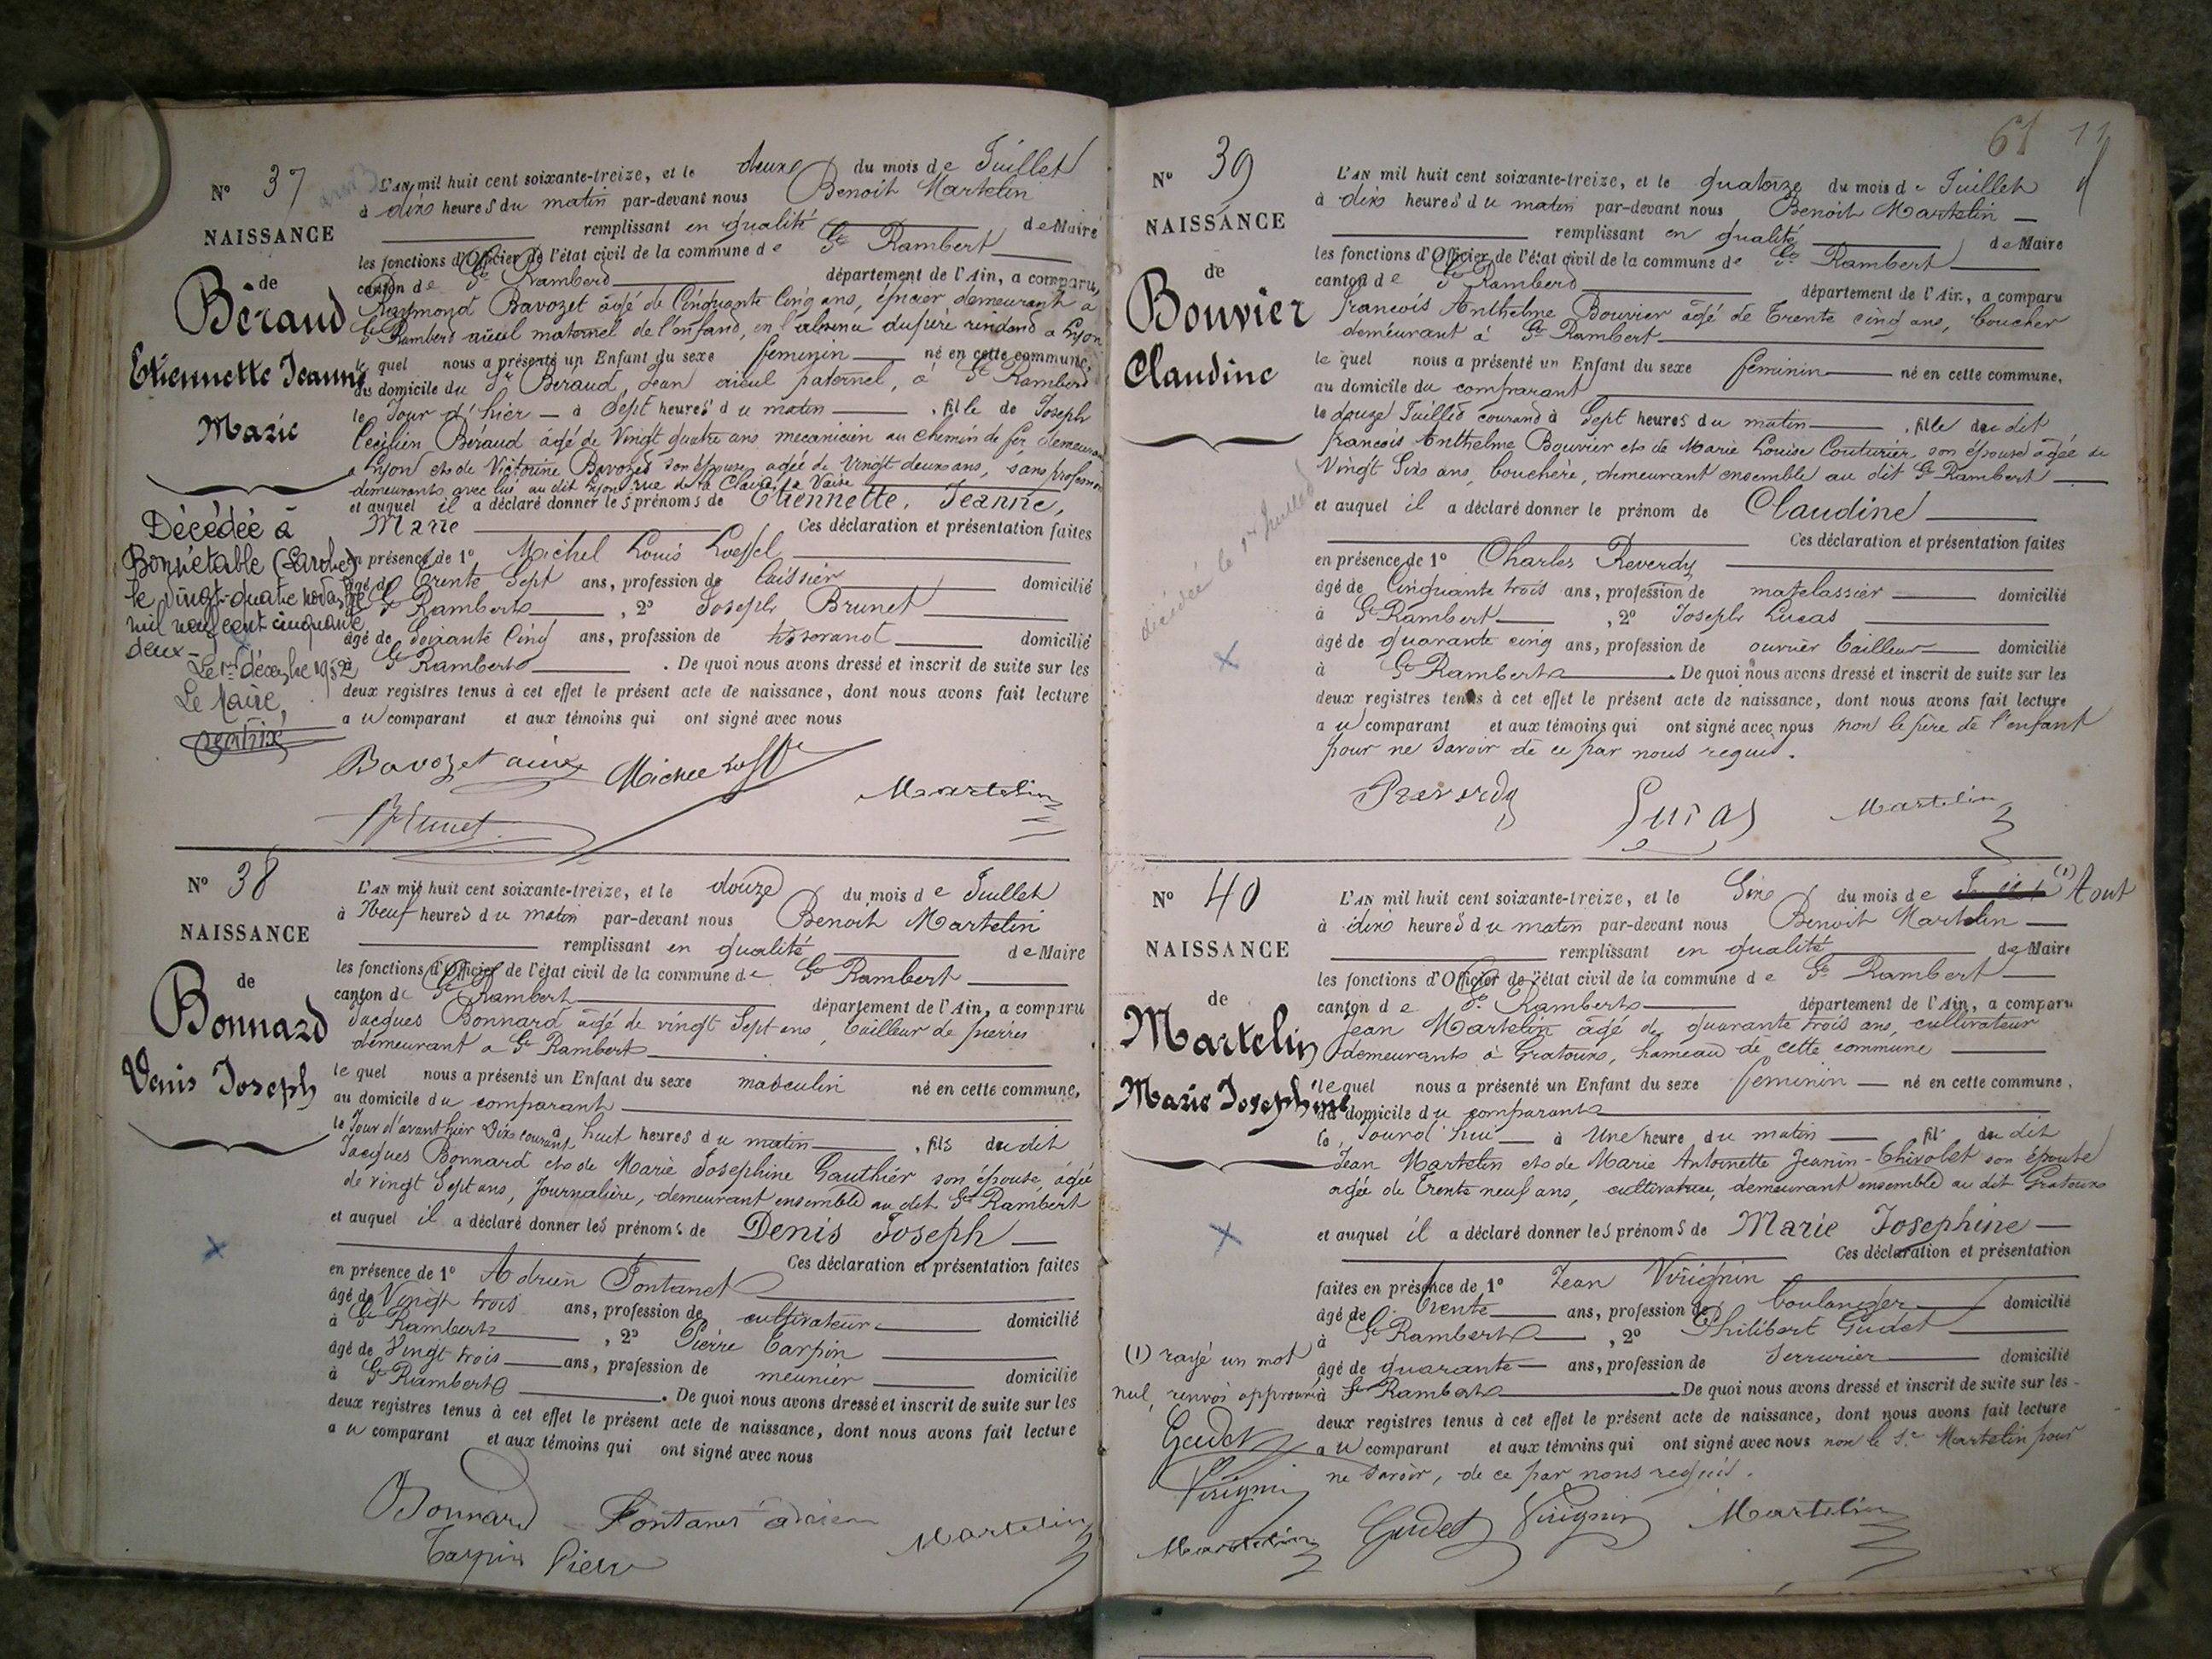 N° 37
NAISSANCE
de
Béraud
Etiennette Jeanne
Marie
Décédée à
Bonnétable (Sarthe)
le vingt-quatre novembre
mil neuf cent cinquante
deux -
Le 1er décembre 1952
Le Maire,
L'AN mil huit cent soixante-treize, et le deux du mois de Juillet
à dix heures du matin par-devant nous Benoit Martelin
remplissant en qualité de Maire
les fonctions d'Officier de l'état civil de la commune de St Rambert
canton de St Rambert département de l'Ain, a comparu,
Raymond Bavozet âgé de Cinquante Cinq ans, épicier demeurant à
St Rambert aïeul maternel de l'enfant, en l'absence du père résidant à Lyon
le quel nous a présenté un Enfant du sexe féminin né en cette commune,
au domicile du Sr Béraud, Jean aïeul paternel, à St Rambert
le Jour d'hier à Sept heures du matin , fille de Joseph
Cecilien Béraud âgé de Vingt quatre ans mecanicien au chemin de fer demeurant
à Lyon et de Victorine Bavozet son épouse, agée de Vingt deux ans, sans profession
demeurants avec lui au dit Lyon rue de la Claire, à Vaise
et auquel il a déclaré donner les prénoms de Etiennette, Jeanne,
Marie Ces déclaration et présentation faites
en présence de 1° Michel Louis Loeffel
âgé de Trente Sept ans, profession de Caissier domicilié
à St Rambert , 2° Joseph Brunet
âgé de Soixante Cinq ans, profession de tisserand domicilié
à St Rambert . De quoi nous avons dressé et inscrit de suite sur les
deux registres tenus à cet effet le présent acte de naissance, dont nous avons fait lecture
au comparant et aux témoins qui ont signé avec nous
Bavozet ainé Michel Martelin
Brunet
N° 38
NAISSANCE
de
Bonnard
Denis Joseph
L'AN mil huit cent soixante-treize, et le douze du mois de Juillet
à Neuf heures du matin par-devant nous Benoit Martelin
remplissant en qualité de Maire
les fonctions d'Officier de l'état civil de la commune de St Rambert
canton de St Rambert département de l'Ain, a comparu
Jacques Bonnard âgé de vingt Sept ans, tailleur de pierres
demeurant à St Rambert
le quel nous a présenté un Enfant du sexe masculin né en cette commune,
au domicile du comparant
le Jour d'avant hier Dix courant à huit heures du matin , fils du dit
Jacques Bonnard et de Marie Josephine Gauthier son épouse, agée
de vingt Sept ans, Journalière, demeurant ensemble au dit St Rambert
et auquel il a déclaré donner les prénoms de Denis Joseph
Ces déclaration et présentation faites
en présence de 1° Adrien Fontanet
âgé de Vingt trois ans, profession de cultivateur domicilié
à St Rambert , 2° Pierre Tarpin
âgé de Vingt trois ans, profession de meunier domicilié
à St Rambert . De quoi nous avons dressé et inscrit de suite sur les
deux registres tenus à cet effet le présent acte de naissance, dont nous avons fait lecture
au comparant et aux témoins qui ont signé avec nous
Bonnard Fontanet adrien Martelin
Tarpin Pierre
61
N° 39
NAISSANCE
de
Bouvier
Claudine
L'AN mil huit cent soixante-treize, et le quatorze du mois de Juillet
à dix heures du matin par-devant nous Benoit Martelin
remplissant en qualité de Maire
les fonctions d'Officier de l'état civil de la commune de St Rambert
canton de St Rambert département de l'Ain, a comparu
francois Anthelme Bouvier âgé de Trente cinq ans, boucher
demeurant à St Rambert
le quel nous a présenté un Enfant du sexe féminin né en cette commune,
au domicile du comparant
le douze Juillet courant à Sept heures du matin , fille du dit
francois Anthelme Bouvier et de Marie Louise Couturier son épouse agée de
Vingt Six ans, bouchère, demeurant ensemble au dit St Rambert
et auquel il a déclaré donner le prénom de Claudine
Ces déclaration et présentation faites
en présence de 1° Charles Reverdy
âgé de Cinquante trois ans, profession de matelassier domicilié
à St Rambert , 2° Joseph Lucas
âgé de quarante cinq ans, profession de ouvrier tailleur domicilié
à St Rambert . De quoi nous avons dressé et inscrit de suite sur les
deux registres tenus à cet effet le présent acte de naissance, dont nous avons fait lecture
au comparant et aux témoins qui ont signé avec nous non le père de l'enfant
pour ne savoir de ce par nous requis.
décédée le 1er Juillet
Reverdy Lucas Martelin
N° 40
NAISSANCE
de
Martelin
Marie Josephine
L'AN mil huit cent soixante-treize, et le Six du mois de (1) Aout
à dix heures du matin par-devant nous Benoit Martelin
remplissant en qualité de Maire
les fonctions d'Officier de l'état civil de la commune de St Rambert
canton de St Rambert département de l'Ain, a comparu
Jean Martelin âgé de quarante trois ans, cultivateur
demeurant à Gratoux, hameau de cette commune
le quel nous a présenté un Enfant du sexe féminin né en cette commune,
au domicile du comparant
le Jourd'hui à Une heure du matin fil du dit
Jean Martelin et de Marie Antoinette Jeanin-Chivolet son épouse
agée de Trente neuf ans, cultivatrice, demeurant ensemble au dit Gratoux
et auquel il a déclaré donner les prénoms de Marie Josephine
Ces déclaration et présentation
faites en présence de 1° Jean Virignin
âgé de Trente ans, profession de boulanger domicilié
à St Rambert , 2° Philibert Gudet
âgé de quarante ans, profession de serrurier domicilié
à St Rambert De quoi nous avons dressé et inscrit de suite sur les
deux registres tenus à cet effet le présent acte de naissance, dont nous avons fait lecture
au comparant et aux témoins qui ont signé avec nous non le Sr Martelin pour
ne savoir, de ce par nous requis.
(1) rayé un mot
nul, renvoi approuvé
Gudet
Virignin
Martelin Gudet Virignin Martelin